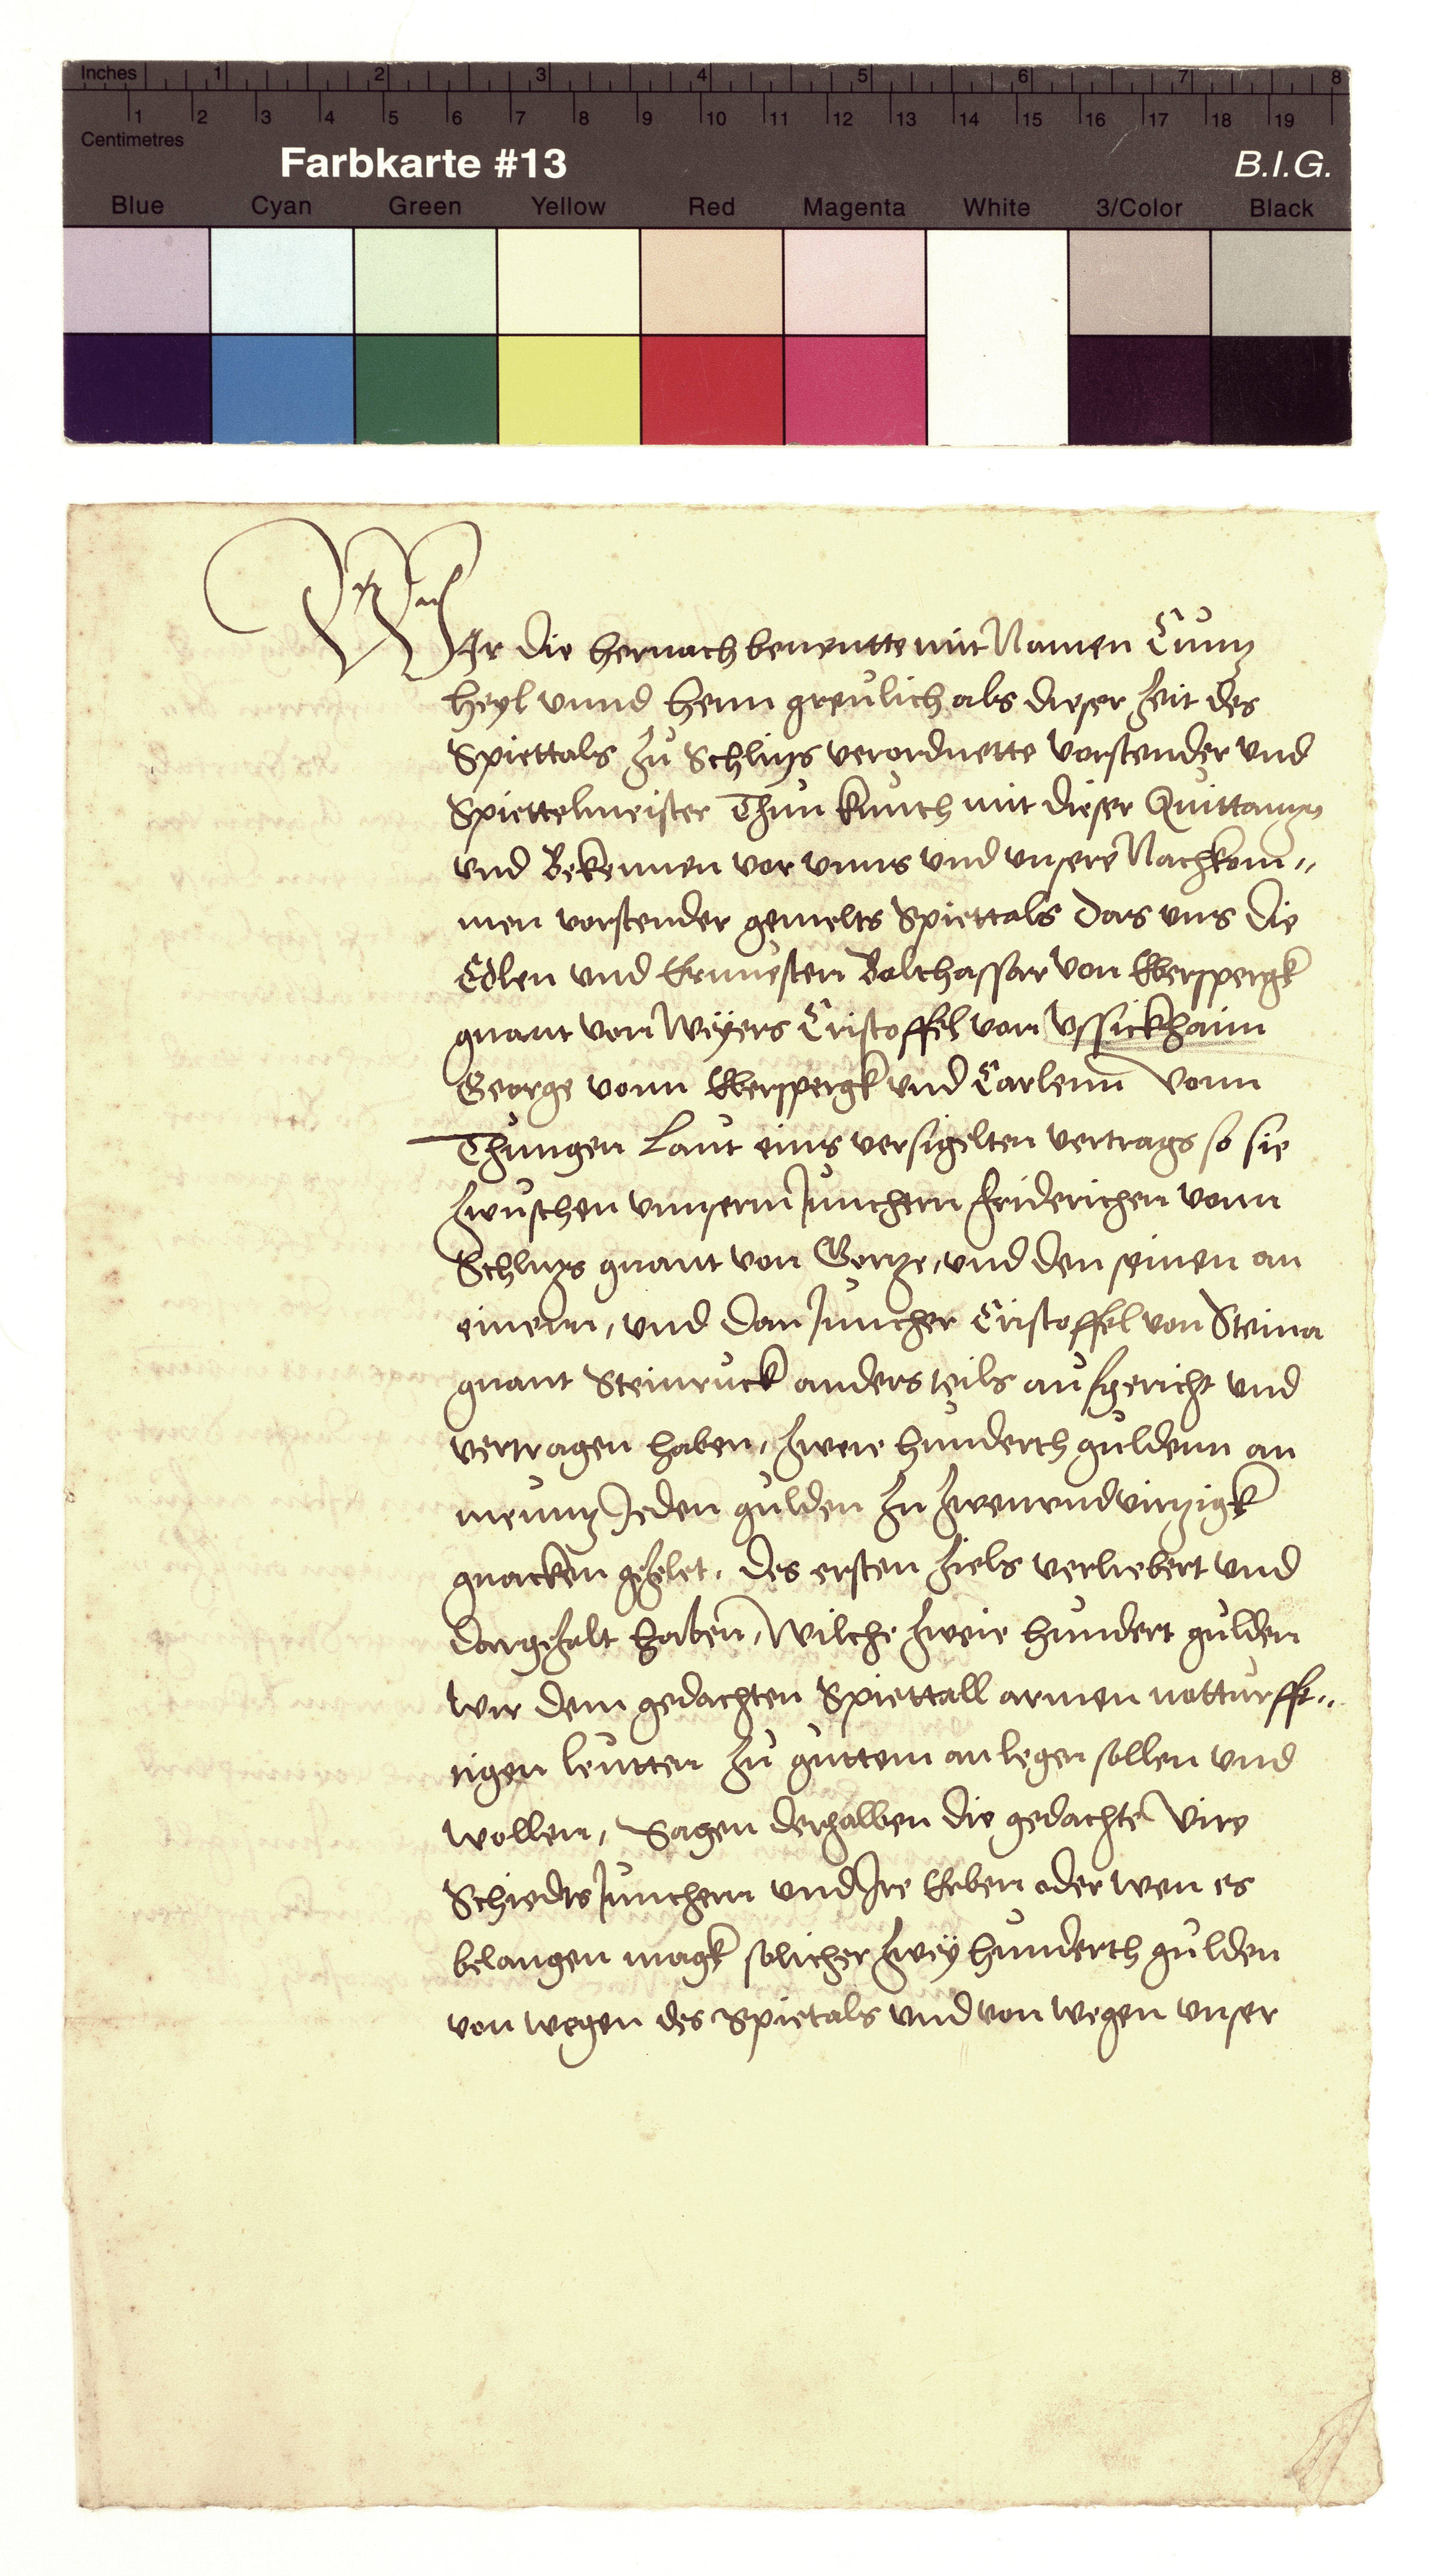 Inches 1 2 3 4 5 6 7 8
1 2 3 4 5 6 7 8 9 10 11 12 13 14 15 16 17 18 19
Centimetres
Farbkarte #13 B.I.G.
Blue Cyan Green Yellow Red Magenta White 3/Color Black
WIr die hernach benentte mit Namen Cuntz
heyl vnnd henn greulich als dieser Zeit des
Spiettals zu Schlitzs verordnette vorstender vnd
Spiettelmeister Thun kunth mit dieser Quittantzs
vnd Bekennen vor vnns vnd vnsere Nachkom„
men vorstender gemelts Spiettals das vns die
Edlen vnd Ernuesten Balthassar von Eberspergk
gnant von Weÿers Cristoffel von Vssickhaim
George vonn Eberspergk vnd Carlenn vonn
Thungen Laut eins versigelten vertrags so sie
Zwuschen vnnserm Junchern Friderichen vonn
Schlitzs gnant von Gortze, vnd den seinen an
einem, vnd dan Juncher Cristoffel von Steina
gnant Steinruck anders teils aufgericht vnd
vertragen haben, Zweie hunderth guldenn an
meuntz Jeden gulden zu Zwenvndvirtzigk
gnacken gezelet, des ersten Ziels verliebert vnd
dargezalt haben, Wilche Zweie hundert gulden
Wir dem gedachten Spiettall armen notturfft„
tigen leutten Zu guttem anlegen sollen vnd
Wollen, Sagen derhalben die gedachte Vire
Schiedts Junchern vnd Ire Erben oder wen es
belangen magk solicher Zweÿ hunderth gulden
von wegen des Spietals vnd von wegen vnser